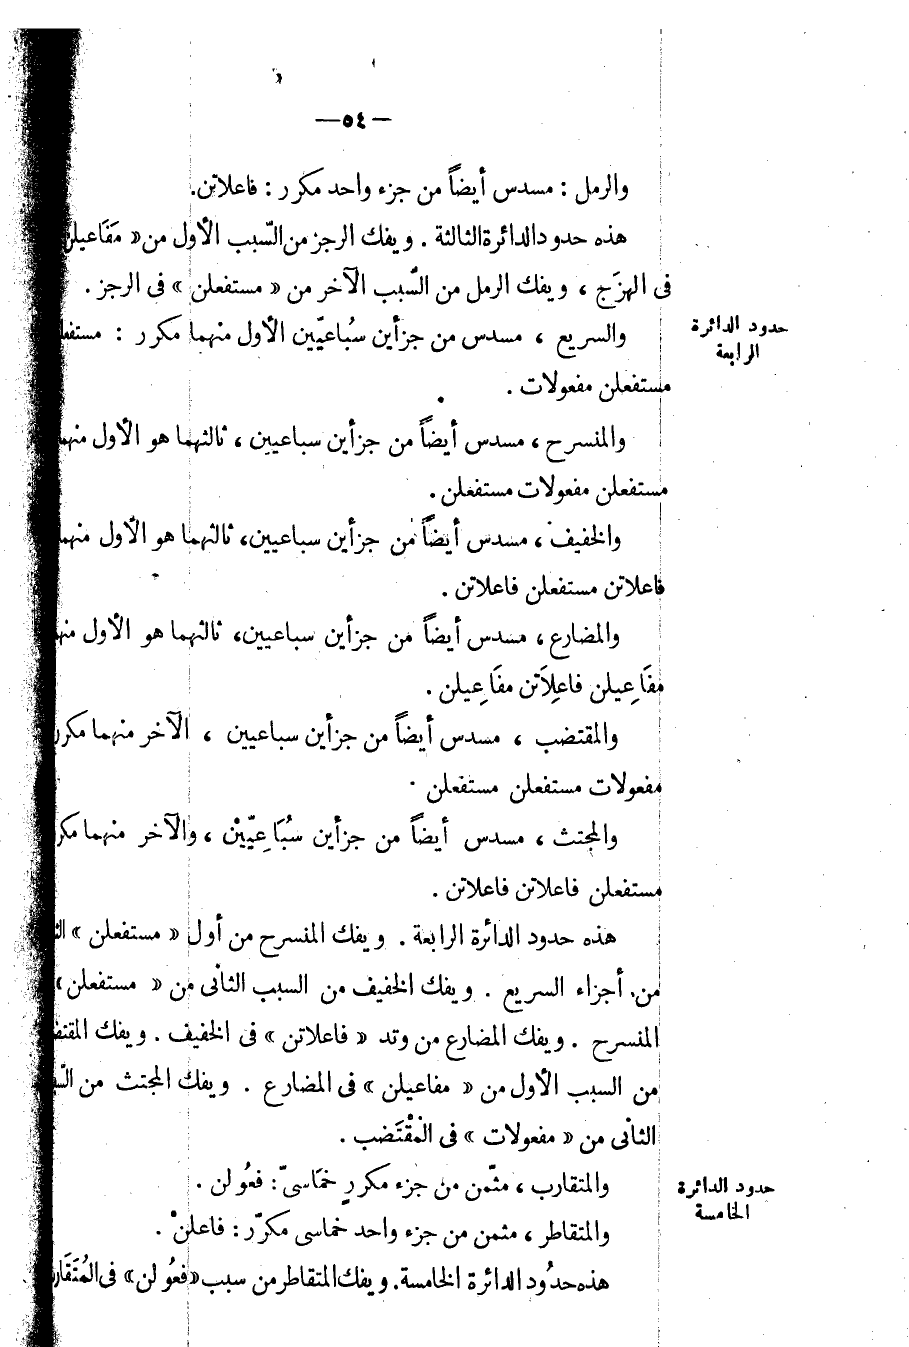 —٥٤—
والرمل : مسدس أيضاً من جزء واحد مكرر : فاعلاتن.
هذه حدود الدائرة الثالثة . ويفك الرجز من السّبب الأول من « مَفَاعيلن
فى الهزَج ، ويفك الرمل من السَّبب الآخر من « مستفعلن » فى الرجز .
حدود الدائرة
الرابعة
والسريع ، مسدس من جزأين سُباعيّين الأول منهما مكرر :
مستفعلن مفعولات .
والمنسرح ، مسدس أيضاً من جزأين سباعيين ، ثالثهما هو الأول منهما
مستفعلن مفعولات مستفعلن .
والخفيف ، مسدس أيضاً من جزأين سباعيين، ثالثهما هو الأول منهما
فاعلاتن مستفعلن فاعلاتن .
والمضارع ، مسدس أيضاً من جزأين سباعيين، ثالثهما هو الأول
مفَاعِيلن فاعِلَاتن مفَاعِيلن .
والمقتضب ، مسدس أيضاً من جزأين سباعيين ، الآخر منهما مكرر
مفعولات مستفعلن مستفعلن .
والمجتث ، مسدس أيضاً من جزأين سُبَاعِيّيْن ، والآخر منهما
مستفعلن فاعلاتن فاعلاتن .
هذه حدود الدائرة الرابعة . ويفك المنسرح من أول « مستفعلن »
من أجزاء السريع . ويفك الخفيف من السبب الثانى من « مستفعلن »
المنسرح . ويفك المضارع من وتد « فاعلاتن » فى الخفيف . ويفك
من السبب الأول من « مفاعيلن » فى المضارع . ويفك المجتث من
الثانى من « مفعولات » فى الْمُقْتَضب .
حدود الدائرة
الخامسة
والمتقارب ، مثمّن من جزء مكررٍ خمَاسىّ : فعُولن .
والمتقاطر ، مثمن من جزء واحد خماسى مكرّر : فاعلنْ .
هذه حدُود الدائرة الخامسة. ويفك المتقاطر من سبب «فعُولن» فى